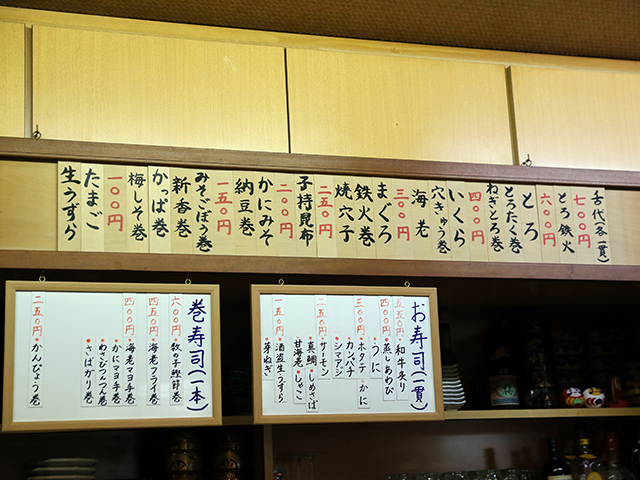 舌代(各一貫)
七〇〇円
とろ鉄火
六〇〇円
とろ
とろたく巻
ねぎとろ巻
四〇〇円
いくら
穴きゅう巻
海老
三〇〇円
まぐろ
鉄火巻
焼穴子
二五〇円
子持昆布
二〇〇円
かにみそ
納豆巻
一五〇円
みそごぼう巻
新香巻
かっぱ巻
梅しそ巻
一〇〇円
たまご
生うずら
お寿司(一貫)
五五〇円
・和牛炙り
四〇〇円
・蒸しあわび
・うに
三〇〇円
・ホタテ
・かに
・カンパチ
・シマアジ
二五〇円
・サーモン
・真鯛
・しめさば
・甘海老
・しゃこ
一五〇円
・酒盗生うずら
・芽ねぎ
巻寿司(一本)
六〇〇円
・数の子鰹節巻
四五〇円
・海老フライ巻
四〇〇円
・海老マヨ巻
・かにマヨ巻
・わさびつんつん巻
・さばがり巻
二五〇円
・かんぴょう巻